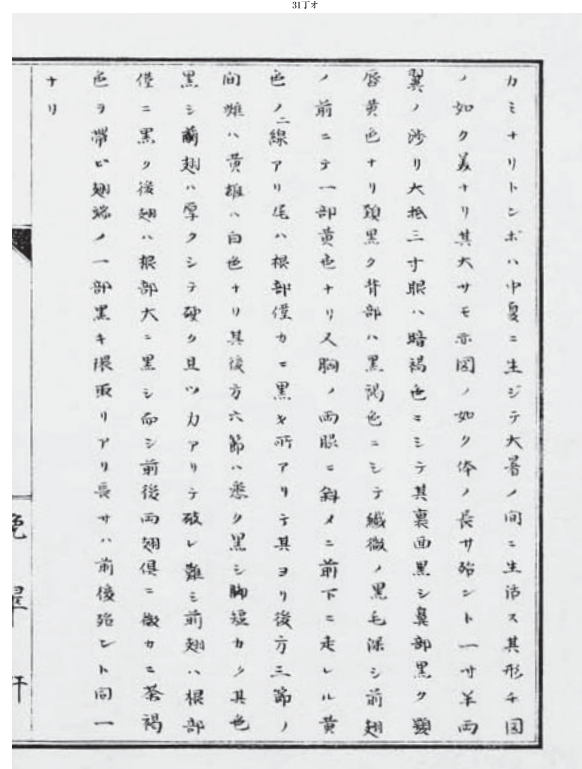 31丁オ
カミナリトンボハ中夏ニ生ジテ大暑ノ間ニ生活ス其形チ図
ノ如ク美ナリ其大サモ亦図ノ如ク体ノ長サ殆ント一寸半両
翼ノ渉リ大抵三寸眼ハ暗褐色ニシテ其裏面黒シ鼻部黒ク顎
唇黄色ナリ頚黒ク背部ハ黒褐色ニシテ繊微ノ黒毛深シ前翅
ノ前ニテ一部黄色ナリ又胸ノ両脇ニ斜メニ前下ニ走レル黄
色ノ二線アリ尾ハ根部僅カニ黒キ所アリテ其ヨリ後方三節ノ
間雌ハ黄雄ハ白色ナリ其後方六節ハ悉ク黒シ脚短カク其色
黒シ前翅ハ厚クシテ硬ク且ツ力アリテ破レ難シ前翅ハ根部
僅ニ黒ク後翅ハ根部大ニ黒シ而シ前後両翅倶ニ微カニ茶褐
色ヲ帯ビ翅端ノ一部黒キ隈取リアリ長サハ前後殆ント同一
ナリ
晩翠軒